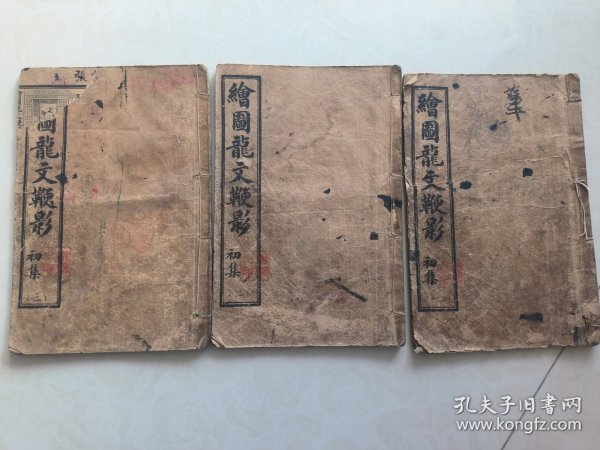 張
圖龍文鞭影
初集
二
繪圖龍文鞭影
初集
繪圖龍文鞭影
初集
一
孔夫子旧书网
www.kongfz.com